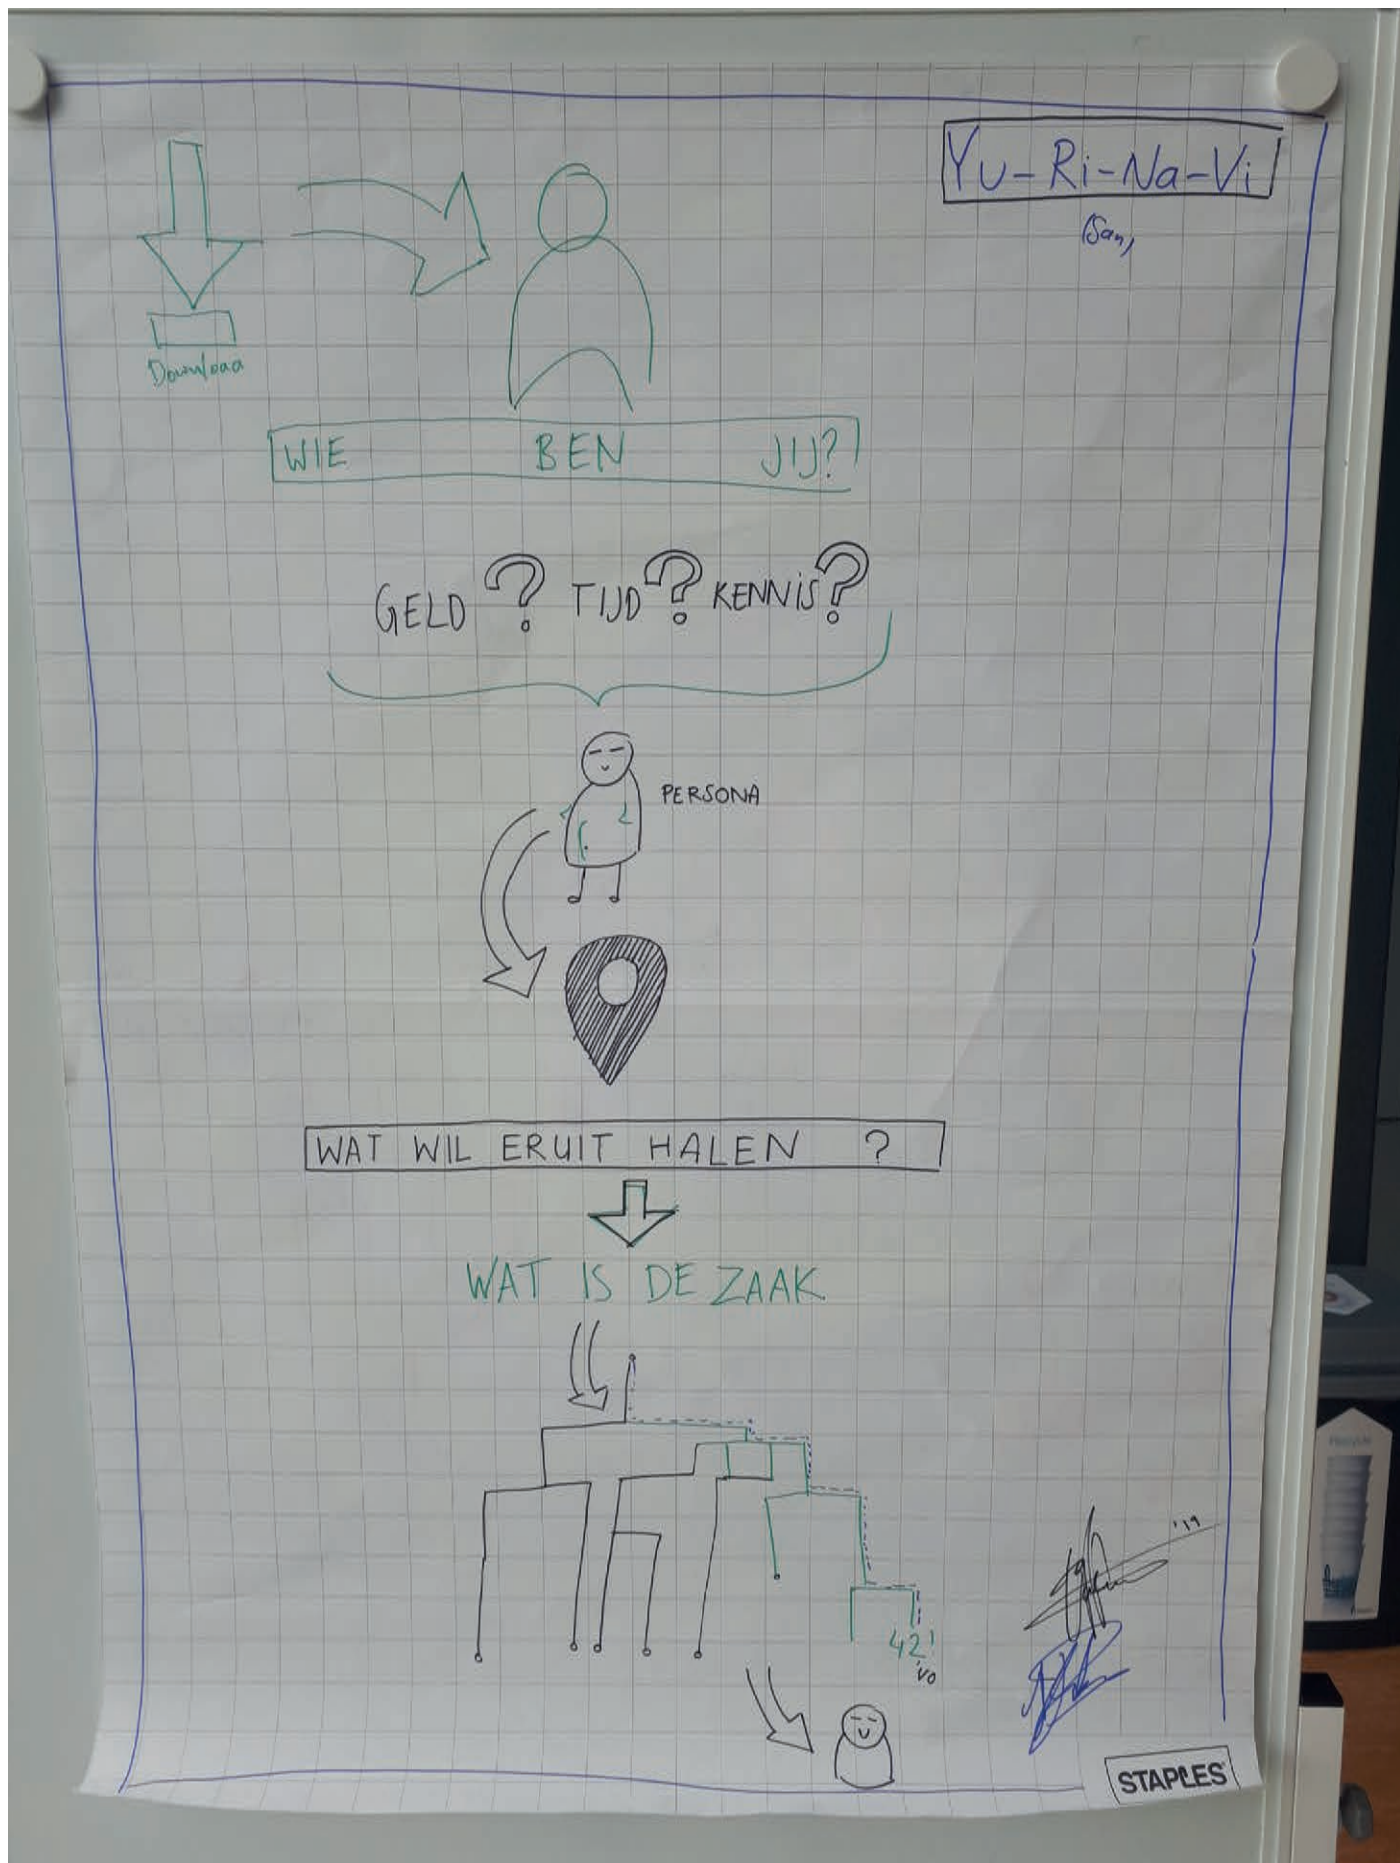 Yu-Ri-Na-Vi
(San)
Download
WIE BEN JIJ?
GELD? TIJD? KENNIS?
PERSONA
WAT WIL ERUIT HALEN ?
WAT IS DE ZAAK
42!
'19
STAPLES